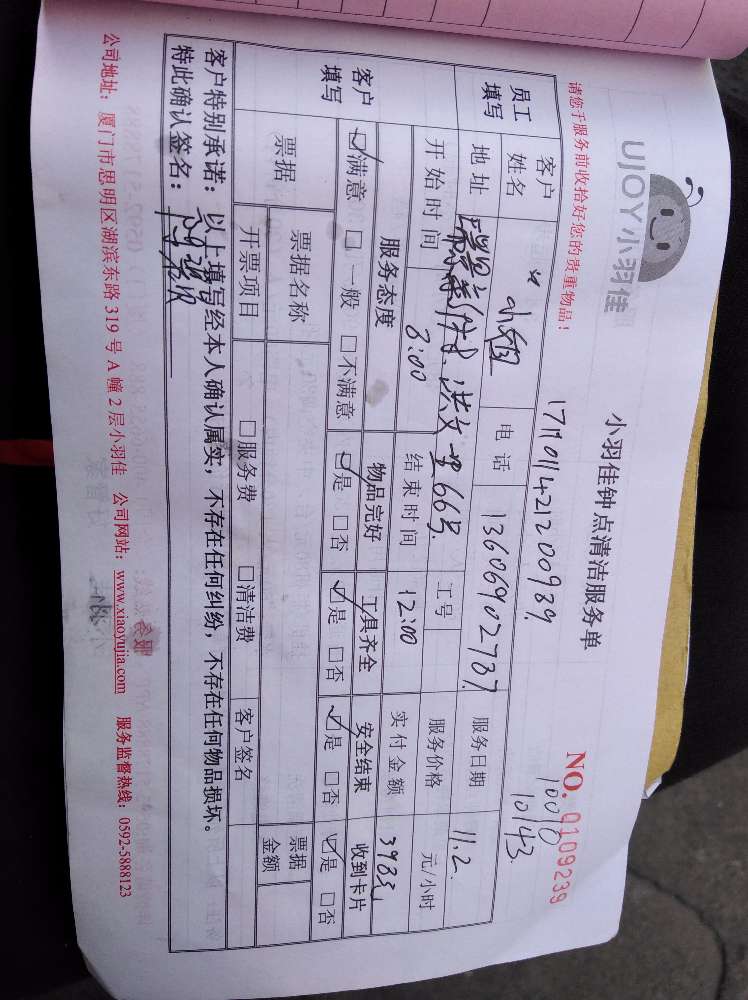 UJOY小羽佳
小羽佳钟点清洁服务单
NO. 0109239
请您于服务前收拾好您的贵重物品！
10143
员工填写 客户姓名 小姐 电话 13606902787 服务日期 11.2
地址 668 工号 服务价格 元/小时
开始时间 8:00 结束时间 12:00 实付金额
客户填写 服务态度 物品完好 工具齐全 安全结束 收到卡片
☑满意 □一般 □不满意 ☑是 □否 ☑是 □否 ☑是 □否 ☑是 □否
票据 票据名称 票据金额
开票项目 □服务费 □清洁费 客户签名
客户特别承诺：以上填写经本人确认属实，不存在任何纠纷，不存在任何物品损坏。
特此确认签名：
公司地址：厦门市思明区湖滨东路 319 号 A 幢 2 层小羽佳 公司网站：www.xiaoyujia.com 服务监督热线：0592-5888123